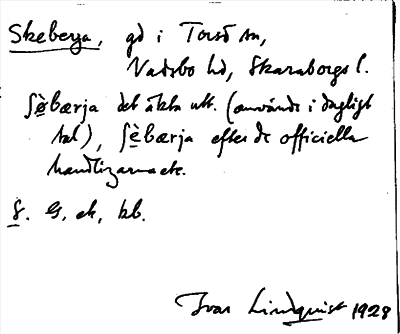 Skeberga, gd i Torsö sn,
Vadsbo hd, Skaraborgs l.
ʃæ̀bærja det äkta utt. (användes i dagligt
tal), ʃèbærja efter de officiella
handlingarna etc.
F. G. ek, bb.
Ivar Lindquist 1928